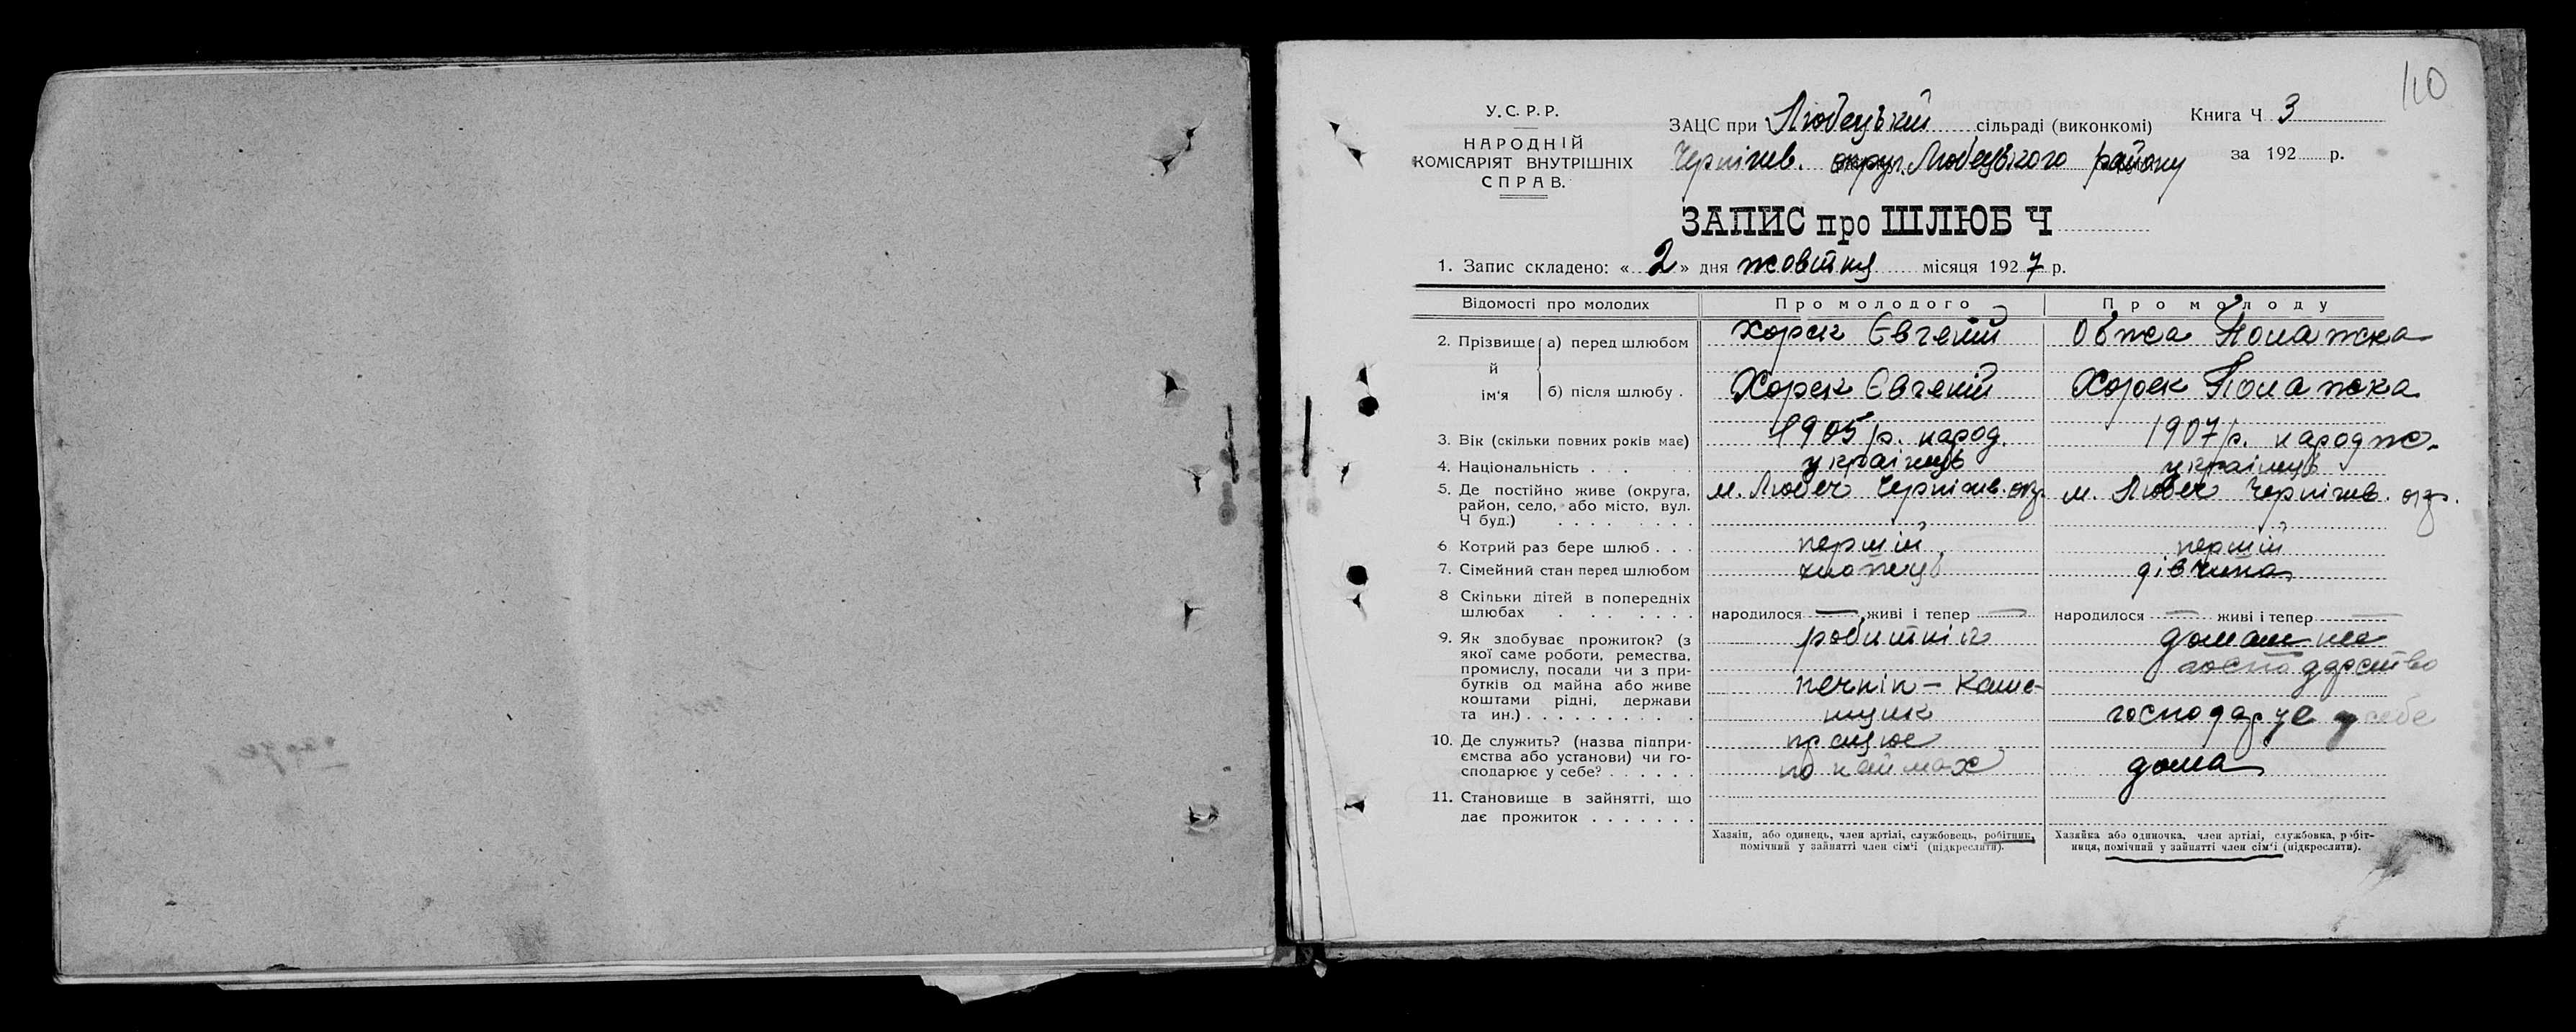 110
У.С.Р.Р.
НАРОДНІЙ
КОМІСАРІЯТ ВНУТРІШНІХ
СПРАВ.
ЗАЦС при Любецькій сільраді (виконкомі)
Чернігів. округ. Любецького району
Книга Ч 3
за 192 р.
ЗАПИС про ШЛЮБ Ч
1. Запис складено: « 2 » дня жовтня місяця 1927 р.
Відомості про молодих
Про молодого
Про молоду
2. Прізвище й ім'я
а) перед шлюбом
Хорек Євгеній
Обжа Полажка
б) після шлюбу .
Хорек Євгеній
Хорек Полажка
3. Вік (скільки повних років має)
1905 р. народ.
1907 р. народж.
4. Національність . . .
українць
українць
5. Де постійно живе (округа,
район, село, або місто, вул.
Ч буд.) . . . . . . .
м. Любеч Чернігів. окр.
м. Любеч Чернігів. окр.
6 Котрий раз бере шлюб . . .
першій
першій
7. Сімейний стан перед шлюбом
хлопець
дівчина
8 Скільки дітей в попередніх
шлюбах . . . . . .
народилося — живі і тепер —
народилося — живі і тепер —
9. Як здобуває прожиток? (з
якої саме роботи, ремества,
промислу, посади чи з при-
бутків од майна або живе
коштами рідні, держави
та ин.) . . . . . . . . . .
робитнік
печнік - каме-
нщик
домашнє
господарство
10. Де служить? (назва підпри-
ємства або установи) чи го-
сподарює у себе? . . . . . .
працює
по наймах
господарує у себе
дома
11. Становище в зайнятті, що
дає прожиток . . . . . . .
Хазяін, або одинець, член артілі, службовець, робітник,
помічний у зайнятті член сім'ї (підкреслити).
Хазяйка або одиночка, член артілі, службовка, робіт-
ниця, помічний у зайнятті член сім'ї (підкреслити).